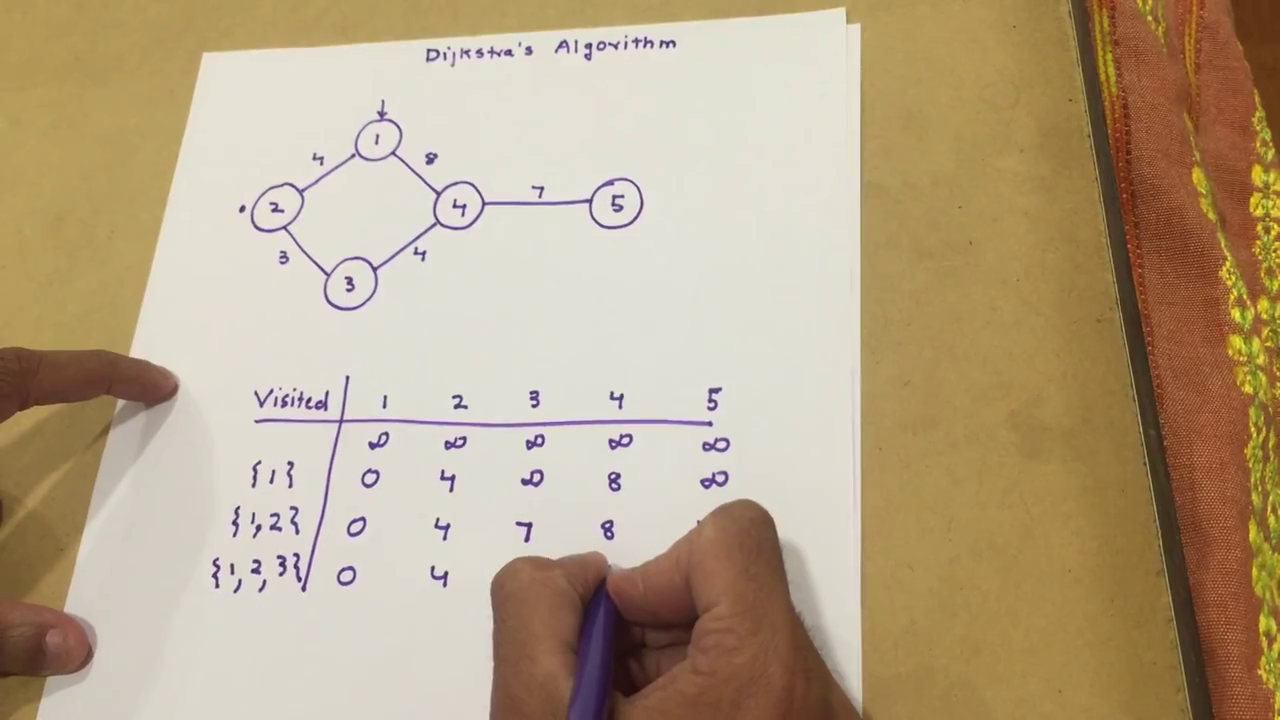 Dijkstra's Algorithm
1
4 8
2 4 7 5
3 4
3
Visited 1 2 3 4 5
∞ ∞ ∞ ∞ ∞
{1} 0 4 ∞ 8 ∞
{1,2} 0 4 7 8
{1,2,3} 0 4